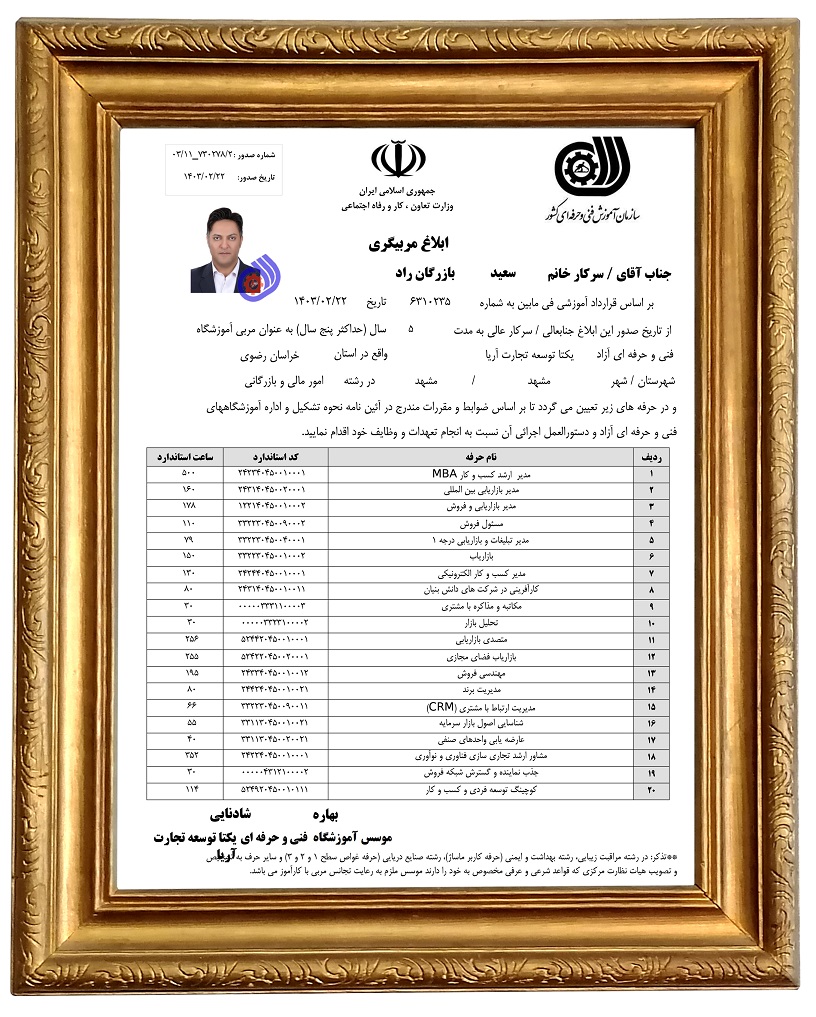 شماره صدور : ۰۳/۱۱_۷۳۰۲۷۸/۲
تاریخ صدور: ۱۴۰۳/۰۲/۲۲
جمهوری اسلامی ایران
وزارت تعاون ، کار و رفاه اجتماعی
سازمان آموزش فنی و حرفه ای کشور
ابلاغ مربیگری
جناب آقای / سرکار خانم سعید بازرگان راد
بر اساس قرارداد آموزشی فی مابین به شماره ۶۳۱۰۲۳۵ تاریخ ۱۴۰۳/۰۲/۲۲
از تاریخ صدور این ابلاغ جنابعالی / سرکار عالی به مدت ۵ سال (حداکثر پنج سال) به عنوان مربی آموزشگاه
فنی و حرفه ای آزاد یکتا توسعه تجارت آریا واقع در استان خراسان رضوی
شهرستان / شهر مشهد / مشهد در رشته امور مالی و بازرگانی
و در حرفه های زیر تعیین می گردد تا بر اساس ضوابط و مقررات مندرج در آئین نامه نحوه تشکیل و اداره آموزشگاههای
فنی و حرفه ای آزاد و دستورالعمل اجرائی آن نسبت به انجام تعهدات و وظایف خود اقدام نمایید.
ردیف نام حرفه کد استاندارد ساعت استاندارد
۱ مدیر ارشد کسب و کار MBA ۲۴۲۳۴۰۴۵۰۰۱۰۰۰۱ ۵۰۰
۲ مدیر بازاریابی بین المللی ۲۴۳۱۴۰۴۵۰۰۲۰۰۰۱ ۱۶۰
۳ مدیر بازاریابی و فروش ۱۲۲۱۴۰۴۵۰۰۱۰۰۰۲ ۱۷۸
۴ مسئول فروش ۳۳۲۲۳۰۴۵۰۰۹۰۰۰۲ ۱۱۰
۵ مدیر تبلیغات و بازاریابی درجه ۱ ۳۳۲۲۳۰۴۵۰۰۴۰۰۰۱ ۷۹
۶ بازاریاب ۳۳۲۲۳۰۴۵۰۰۱۰۰۰۲ ۱۵۰
۷ مدیر کسب و کار الکترونیکی ۲۴۲۴۴۰۴۵۰۰۱۰۰۰۱ ۱۳۰
۸ کارآفرینی در شرکت های دانش بنیان ۲۴۳۱۴۰۴۵۰۰۱۰۰۱۱ ۸۰
۹ مکاتبه و مذاکره با مشتری ۰۰۰۰۰۳۳۳۱۱۰۰۰۰۳ ۳۰
۱۰ تحلیل بازار ۰۰۰۰۰۳۳۲۳۱۰۰۰۰۲ ۳۰
۱۱ متصدی بازاریابی ۵۲۴۴۲۰۴۵۰۰۱۰۰۰۱ ۲۵۶
۱۲ بازاریاب فضای مجازی ۵۲۴۲۲۰۴۵۰۰۲۰۰۰۱ ۲۵۵
۱۳ مهندسی فروش ۲۴۳۳۴۰۴۵۰۰۱۰۰۱۲ ۱۹۵
۱۴ مدیریت برند ۲۴۴۲۴۰۴۵۰۰۱۰۰۲۱ ۸۰
۱۵ مدیریت ارتباط با مشتری (CRM) ۳۳۲۲۳۰۴۵۰۰۹۰۰۱۱ ۶۶
۱۶ شناسایی اصول بازار سرمایه ۳۳۱۱۳۰۴۵۰۰۱۰۰۲۱ ۵۵
۱۷ عارضه یابی واحدهای صنفی ۳۳۱۱۳۰۴۵۰۰۲۰۰۲۱ ۴۰
۱۸ مشاور ارشد تجاری سازی فناوری و نوآوری ۲۴۲۲۴۰۴۵۰۰۱۰۰۰۱ ۳۵۲
۱۹ جذب نماینده و گسترش شبکه فروش ۰۰۰۰۰۴۳۱۲۱۰۰۰۰۲ ۳۰
۲۰ کوچینگ توسعه فردی و کسب و کار ۵۲۴۹۲۰۴۵۰۰۱۰۱۱۱ ۱۱۴
بهاره شادنایی
موسس آموزشگاه فنی و حرفه ای یکتا توسعه تجارت
آریا
**تذکر: در رشته مراقبت زیبایی، رشته بهداشت و ایمنی (حرفه کاربر ماساژ)، رشته صنایع دریایی (حرفه غواص سطح ۱ و ۲ و ۳) و سایر حرف به تشخیص
و تصویب هیات نظارت مرکزی که قواعد شرعی و عرفی مخصوص به خود را دارند موسس ملزم به رعایت تجانس مربی با کارآموز می باشد.